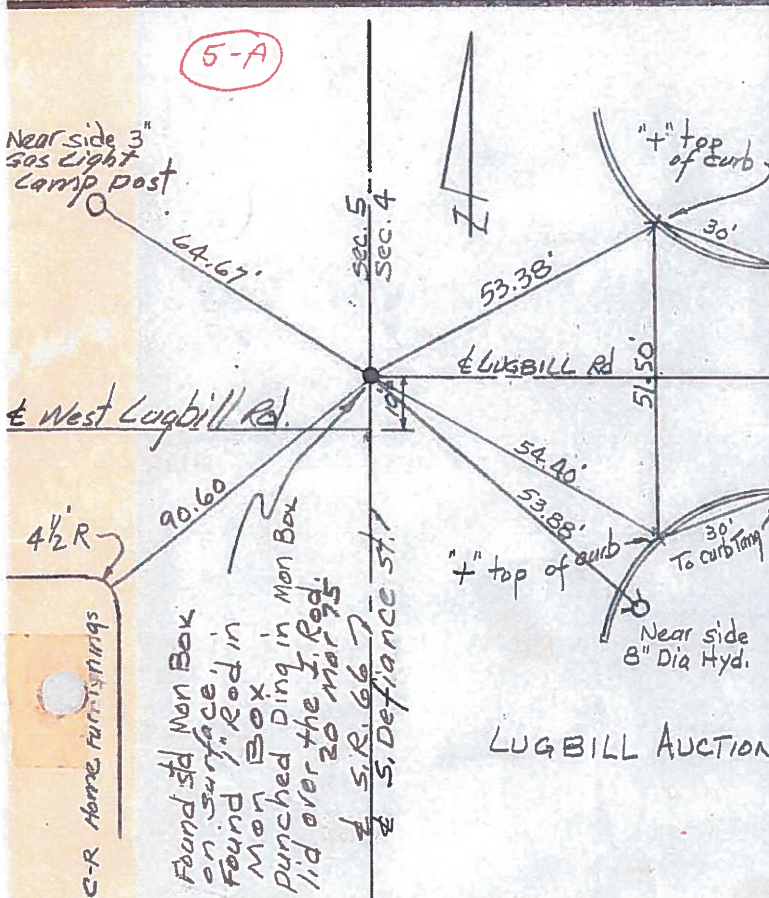 5-A
Near side 3"
Gas Light
Lamp Post
64.67'
Sec. 5
Sec. 4
N
"+" top
of curb
30'
53.38'
51.50'
℄ LUGBILL Rd
℄ West Lugbill Rd.
19'
54.40'
53.88'
90.60
4½' R
"+" top of curb
30'
To curb Tang
Near side
8" Dia Hyd.
LUGBILL AUCTION
C-R Home Furnishings
Found std Mon Box
on surface,
Found 1" Rod in
Mon Box
Punched Ding in Mon Box
lid over the I. Rod.
20 Mar 75
℄ S.R. 66
℄ S. Defiance St.